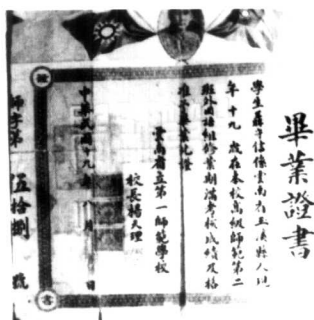 畢業證書
學生聶守信係雲南省玉溪縣人現
年十九歲在本校高級師範第二
班外國語組修業期滿考核成績及格
准予畢業此證
雲南省立第一師範學校
校長楊天理
中華民國十九年八月 日
師字第伍拾捌號
證
書